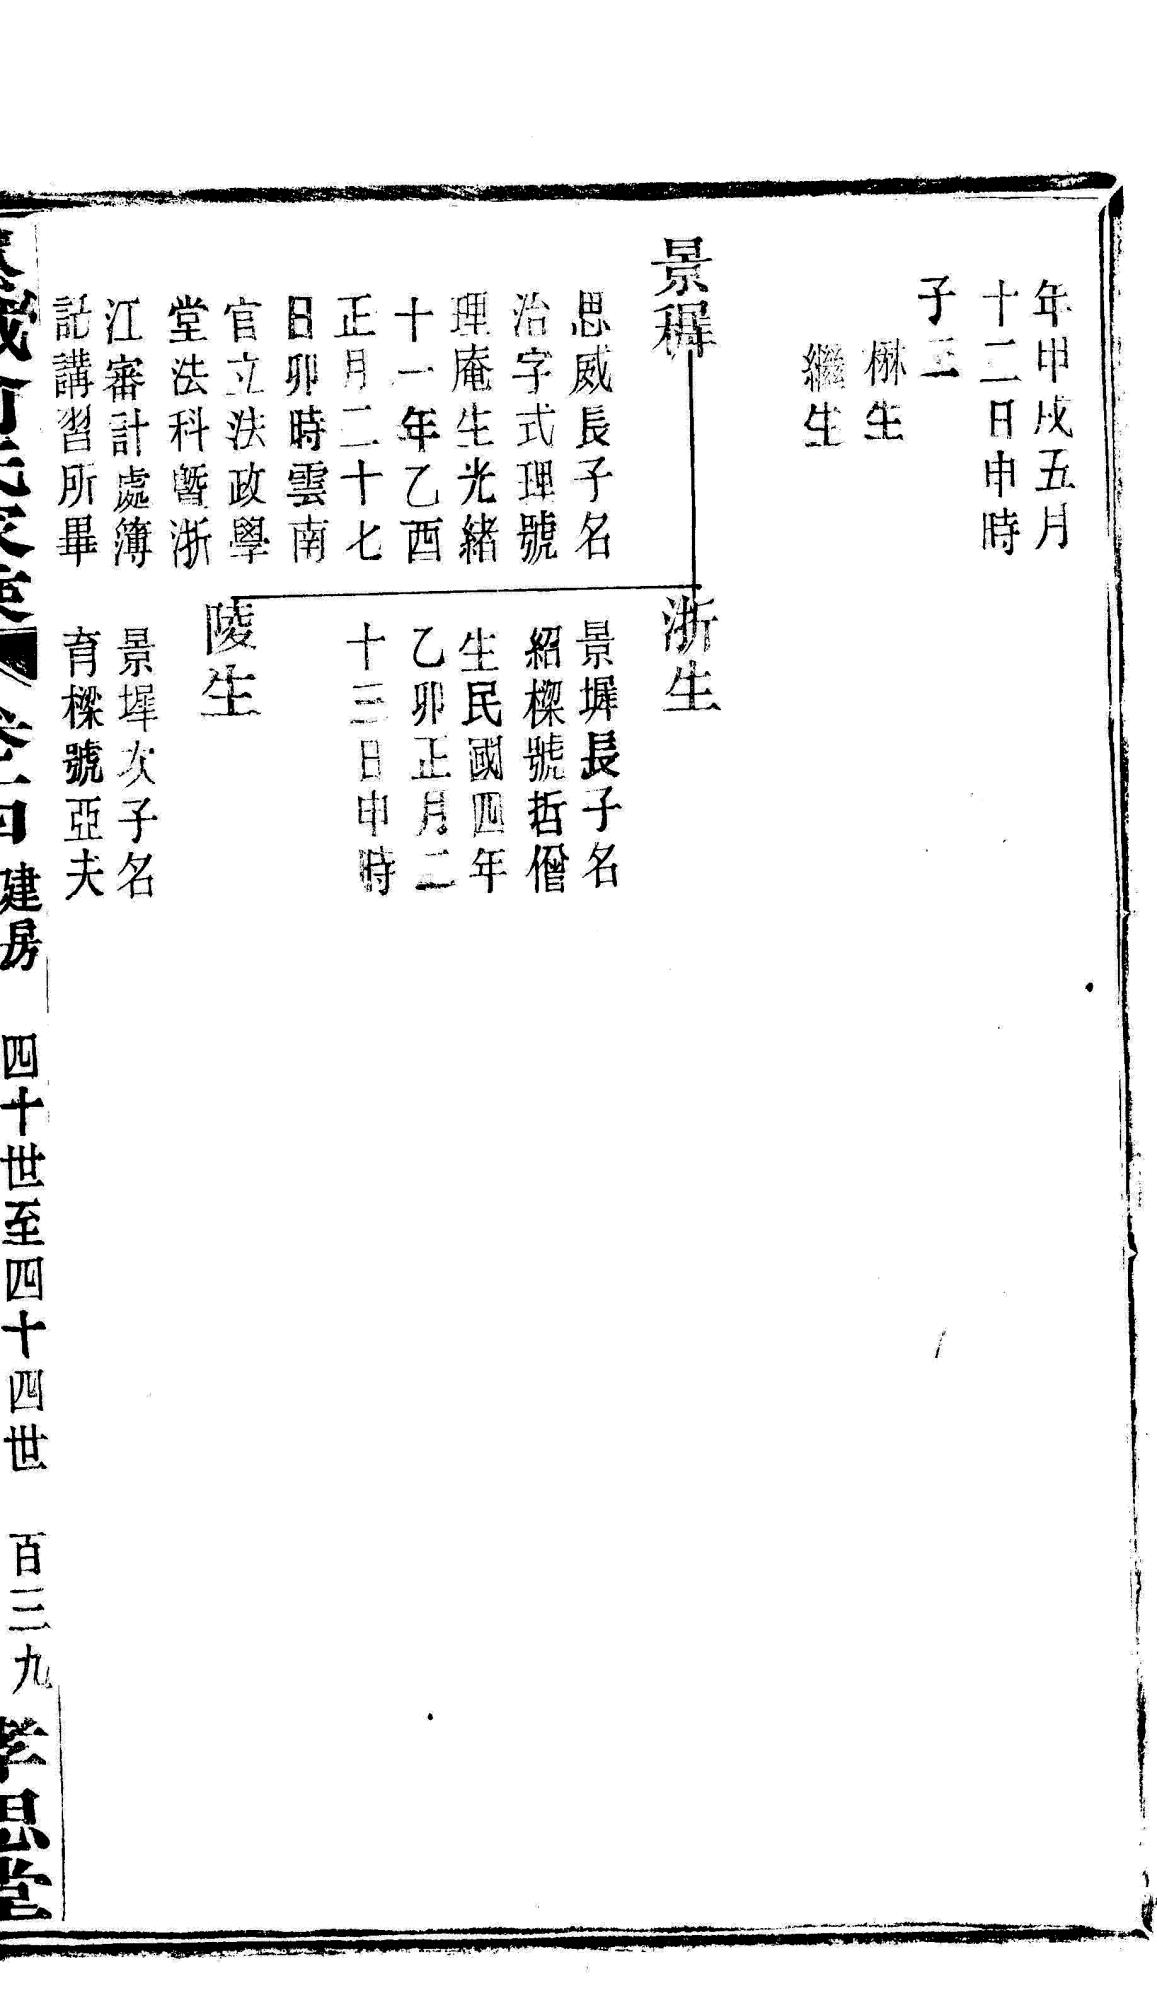 年甲戌五月
十二日申時
子三
楙生
繼生
景穉
思威長子名
治字式理號
理庵生光緒
十一年乙酉
正月二十七
日卯時雲南
官立法政學
堂法科暨浙
江審計處簿
記講習所畢
浙生
景墀長子名
紹樑號哲僧
生民國四年
乙卯正月二
十三日申時
陵生
景墀次子名
育樑號亞夫
氏家乘 卷十四 建房 四十世至四十四世 百三九 孝思堂